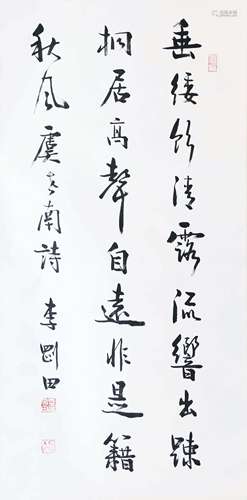 垂緌飲清露流響出疎
桐居高聲自遠非是籍
秋風虞世南詩 李剛田